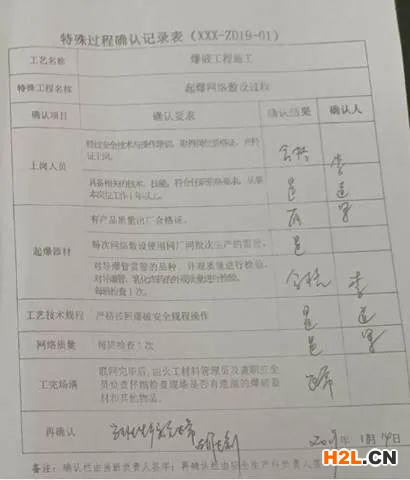 特殊过程确认记录表（XXX-ZD19-01）
工艺名称 爆破工程施工
特殊工程名称 起爆网络敷设过程
确认项目 确认要求 确认结果 确认人
上岗人员
经过安全技术与操作培训，取得岗位资格证，并持
证上岗。
合格 李
具备相关的技术、技能，符合任职资格要求，从事
本岗位工作1年以上。
是
起爆器材
有产品质量出厂合格证。
有
每次网络敷设使用同厂同批次生产的雷管。
是
对导爆管雷管的品种、外观质量进行检验。
对导爆管、乳化炸药的外观质量进行检验。
每班检查1次。
合格 李
工艺技术规程 严格按照爆破安全规程操作 是
网络质量 每班检查1次 是
工完场清
联网完毕后，由火工材料管理员及兼职安全
员负责仔细检查现场是否有遗漏的爆破器
材和其他物品。
再确认
年1月14日
备注：确认栏由当班负责人签字；再确认栏由
H2L.CN